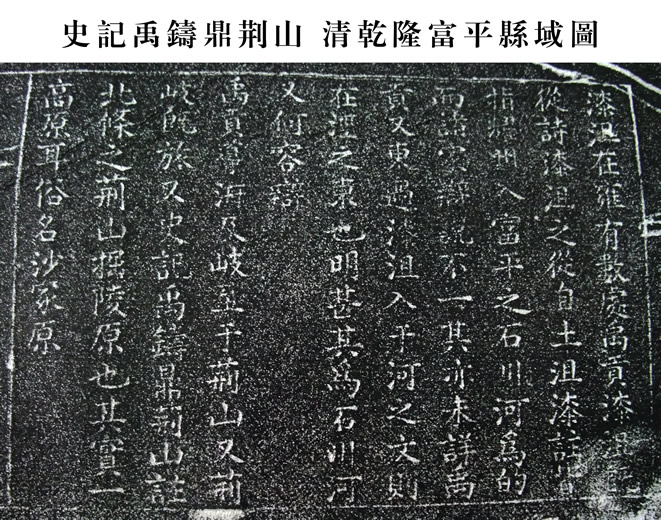 史記禹鑄鼎荆山 清乾隆富平縣域圖
漆沮在雍有數處禹貢漆沮既
從詩漆沮之從自土沮漆註皆
指耀州入富平之石川河爲的
而諸家辯説不一其亦未詳禹
貢又東過漆沮入于河之文則
在涇之東也明甚其爲石川河
又何容辯
禹貢導汧及岐至于荆山又荆
岐既旅又史記禹鑄鼎荆山註
北條之荆山掘陵原也其實一
高原耳俗名沙冢原